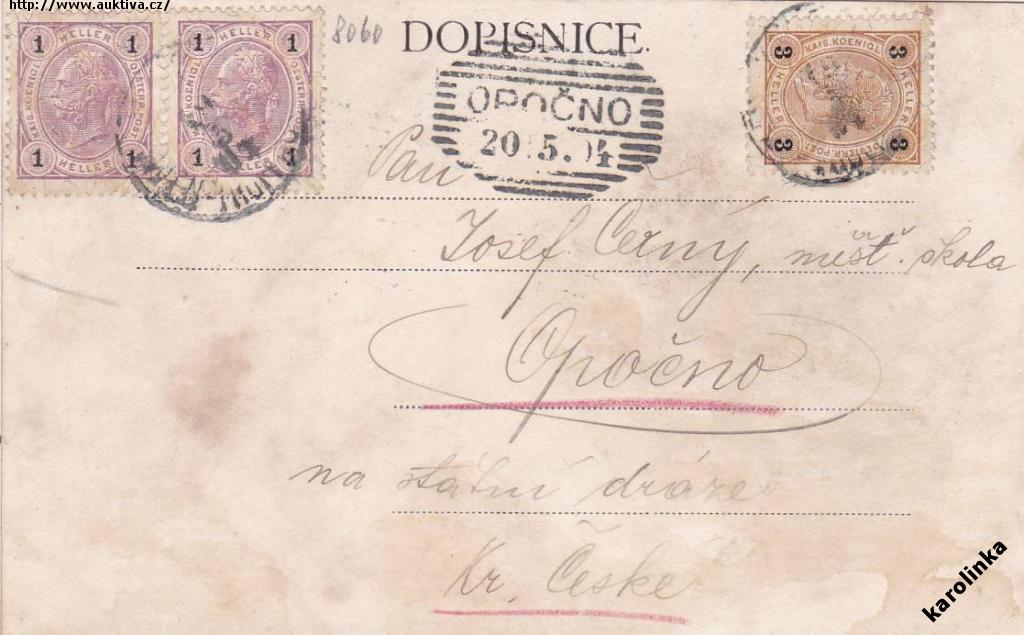 http://www.auktiva.cz/
1 HELLER 1
KAIS. KOENIGL. OESTERR. POST
1 HELLER 1
1 HELLER 1
KAIS. KOENIGL. OESTERR. POST
1 HELLER 1
8060
DOPISNICE.
3 KAIS. KOENIGL. 3
HELLER HELLER
3 OESTERR. POST 3
OPOČNO
20.5.04
Pan
Josef Černý, měšť. škola
Opočno
na státní dráze
Kr. České
karolinka